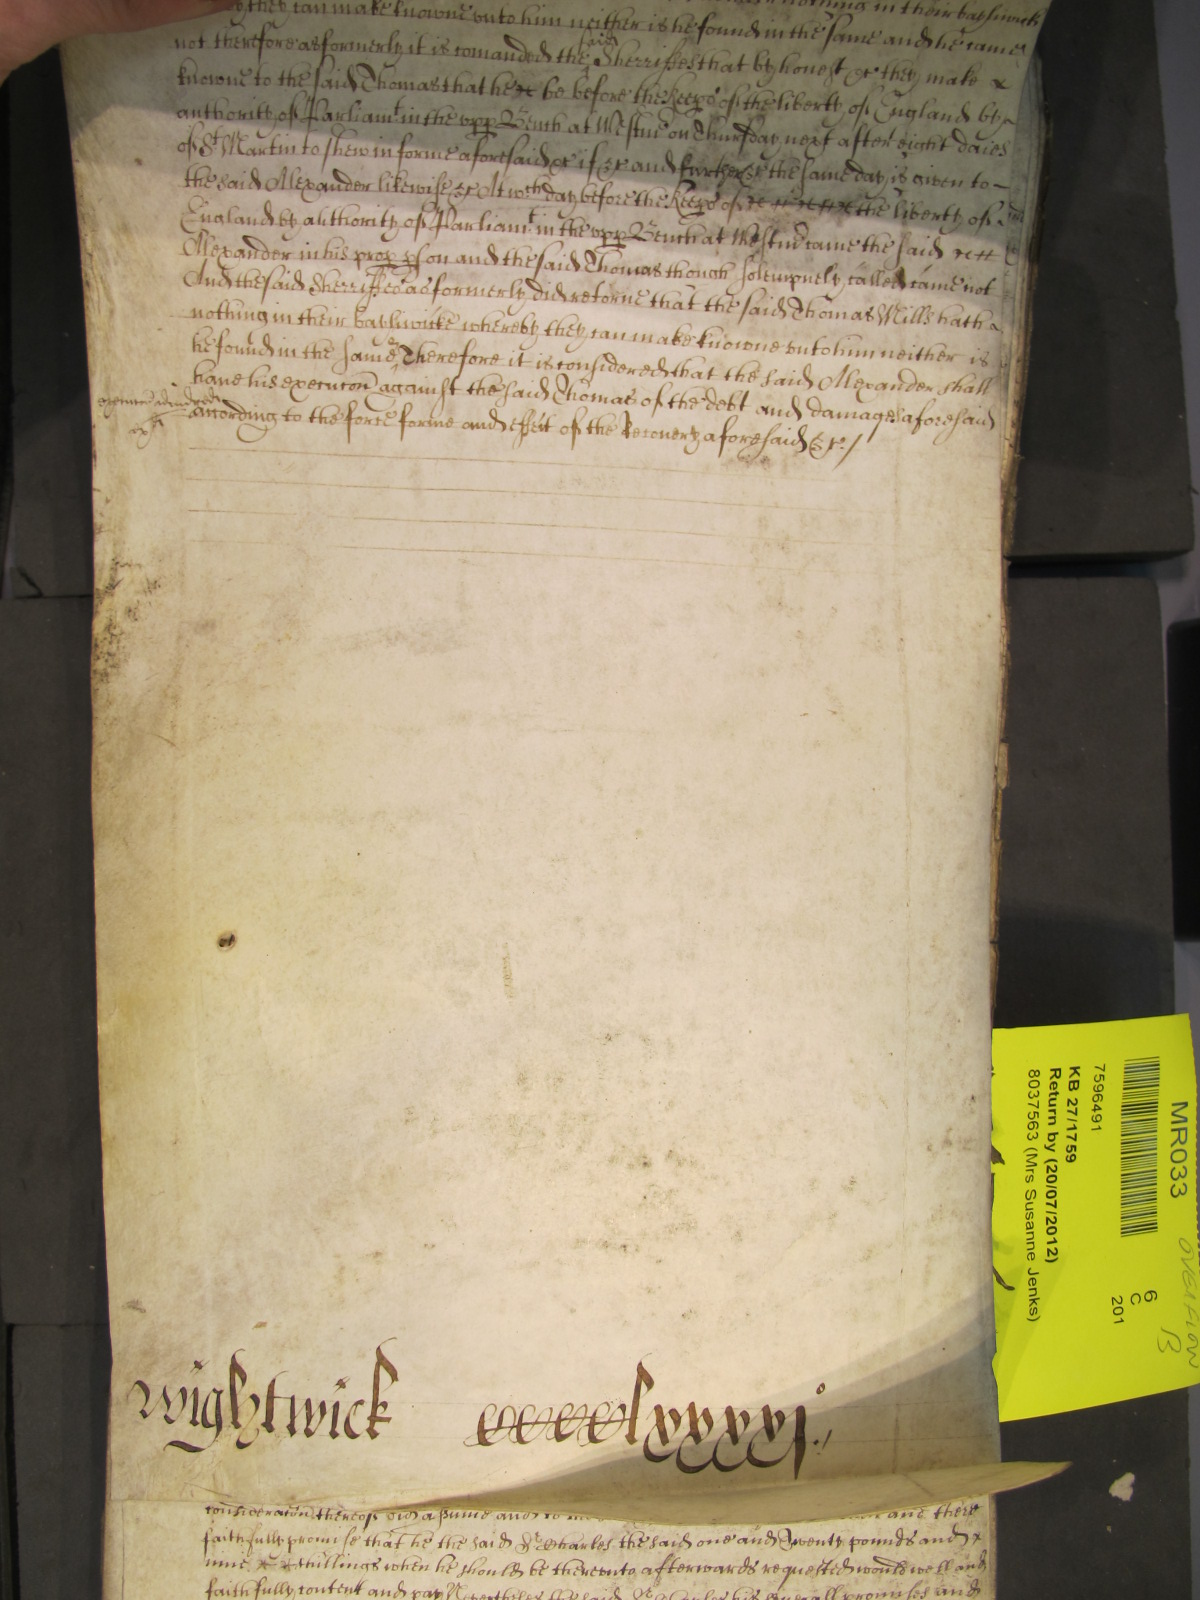 they can make knowne unto him neither is he found in the same and he came
not therefore as formerly it is comanded the said Sherriffes that by honest &c they make
knowne to the said Thomas that he be before the Keeps of the liberty of England by
authority of Parliamt in the upp Bench at Westmr on Thursday next after eight daies
of St Martin to shew in forme aforesaid &c if &c and further &c the same day is given to
the said Alexander likewise &c At wch day before the Keeps of the liberty of
England by authority of Parliamt in the upp Bench at Westmr came the said
Alexander in his prop pson and the said Thomas though solempnely called came not
And the said Sherriffes as formerly did retorne that the said Thomas Mills hath
nothing in their bayliwicke whereby they can make knowne unto him neither is
he found in the same Therefore it is considered that the said Alexander shall
have his execucon against the said Thomas of the debt and damages aforesaid
according to the force forme and effect of the Recovery aforesaid &c /
Wightwick
cccclxxxxj
consideracon thereof did assume and
faithfully promise that he the said Sr Charles the said one and Twenty pounds and
nine shillings when he should be thereunto afterwards requested would well and
faithfully content and pay Nevertheles the said Sr Charles his severall promises and
MR033
7596491
KB 27/1759
Return by (20/07/2012)
8037563 (Mrs Susanne Jenks)
6
C
201
OVERFLOW
13